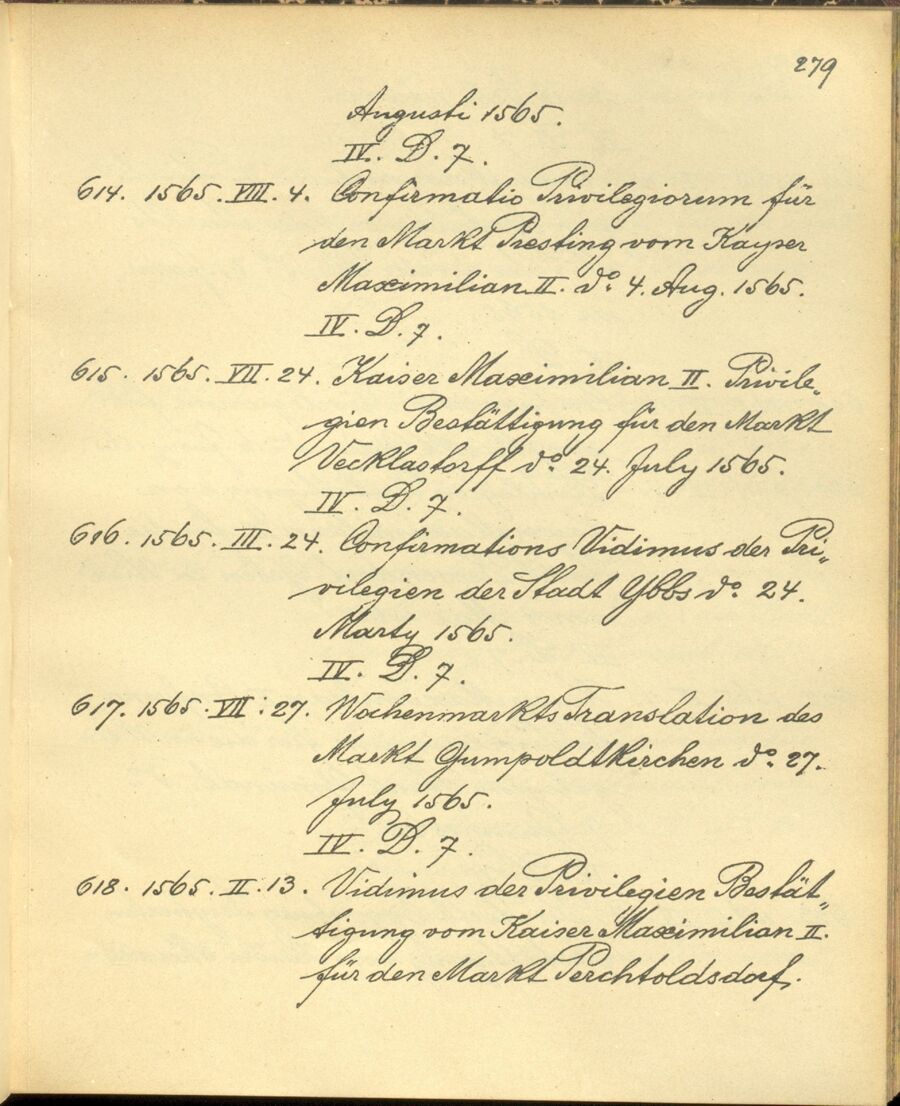 279
Augusti 1565.
IV. D. 7.
614. 1565. VIII. 4. Confirmatio Privilegiorum für
den Markt Piesting vom Kayser
Maximilian II. do. 4. Aug. 1565.
IV. D. 7.
615. 1565. VII. 24. Kaiser Maximilian II. Privile„
gien Bestättigung für den Markt
Vecklastorff do. 24. July 1565.
IV. D. 7.
616. 1565. III. 24. Confirmations Vidimus der Pri„
vilegien der Stadt Ybbs do. 24.
Marty 1565.
IV. D. 7.
617. 1565. VII. 27. Wochenmarkts Translation des
Markt Gumpoldtkirchen do. 27.
July 1565.
IV. D. 7.
618. 1565. II. 13. Vidimus der Privilegien Bestät„
tigung vom Kaiser Maximilian II.
für den Markt Perchtoldsdorf.